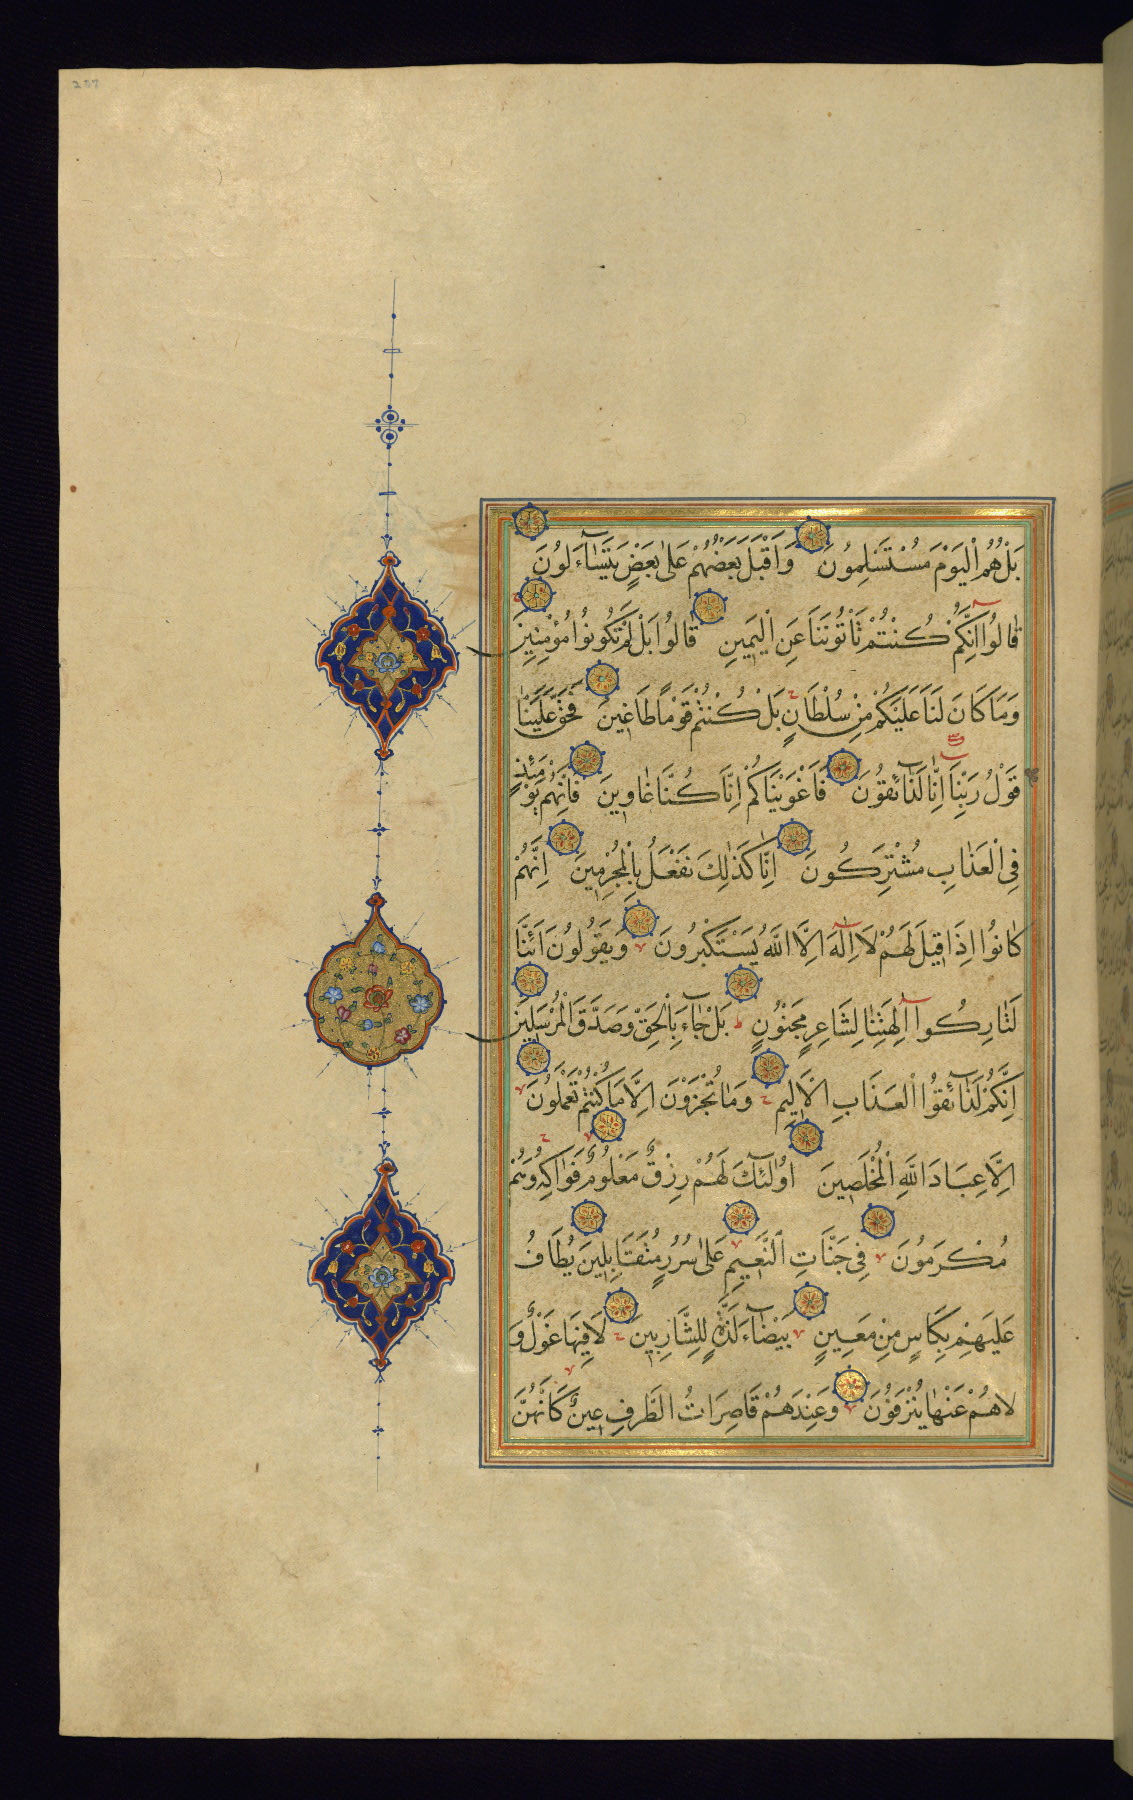 بَلْ هُمُ الْيَوْمَ مُسْتَسْلِمُونَ وَاَقْبَلَ بَعْضُهُمْ عَلٰى بَعْضٍ يَتَسَآءَلُونَ
قَالُوا اِنَّكُمْ كُنْتُمْ تَاْتُونَنَا عَنِ الْيَمِينِ قَالُوا بَلْ لَمْ تَكُونُوا مُؤْمِنِينَ
وَمَا كَانَ لَنَا عَلَيْكُمْ مِنْ سُلْطَانٍ بَلْ كُنْتُمْ قَوْمًا طَاغِينَ فَحَقَّ عَلَيْنَا
قَوْلُ رَبِّنَا اِنَّا لَذَآئِقُونَ فَاَغْوَيْنَاكُمْ اِنَّا كُنَّا غَاوِينَ فَاِنَّهُمْ يَوْمَئِذٍ
فِى الْعَذَابِ مُشْتَرِكُونَ اِنَّا كَذٰلِكَ نَفْعَلُ بِالْمُجْرِمِينَ اِنَّهُمْ
كَانُوا اِذَا قِيلَ لَهُمْ لَا اِلٰهَ اِلَّا اللّٰهُ يَسْتَكْبِرُونَ وَيَقُولُونَ اَئِنَّا
لَتَارِكُوا اٰلِهَتِنَا لِشَاعِرٍ مَجْنُونٍ بَلْ جَآءَ بِالْحَقِّ وَصَدَّقَ الْمُرْسَلِينَ
اِنَّكُمْ لَذَآئِقُوا الْعَذَابِ الْاَلِيمِ وَمَا تُجْزَوْنَ اِلَّا مَا كُنْتُمْ تَعْمَلُونَ
اِلَّا عِبَادَ اللّٰهِ الْمُخْلَصِينَ اُولٰٓئِكَ لَهُمْ رِزْقٌ مَعْلُومٌ فَوَاكِهُ وَهُمْ
مُكْرَمُونَ فِى جَنَّاتِ النَّعِيمِ عَلٰى سُرُرٍ مُتَقَابِلِينَ يُطَافُ
عَلَيْهِمْ بِكَاْسٍ مِنْ مَعِينٍ بَيْضَآءَ لَذَّةٍ لِلشَّارِبِينَ لَا فِيهَا غَوْلٌ وَ
لَا هُمْ عَنْهَا يُنْزَفُونَ وَعِنْدَهُمْ قَاصِرَاتُ الطَّرْفِ عِينٌ كَاَنَّهُنَّ